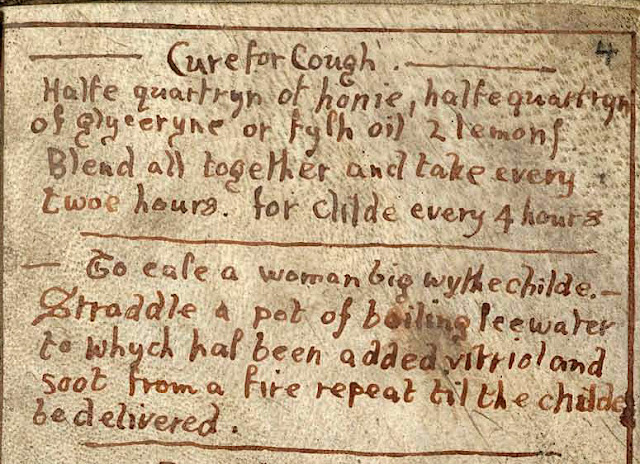 4
Cure for Cough.
Halfe quartryn of honie, halfe quartryn
of glyceryne or fysh oil 2 lemons
Blend all together and take every
twoe hours. for childe every 4 hours
To ease a woman big wythe childe.
Straddle a pot of boiling seewater
to whych has been added vitriol and
soot from a fire repeat til the childe
be delivered.